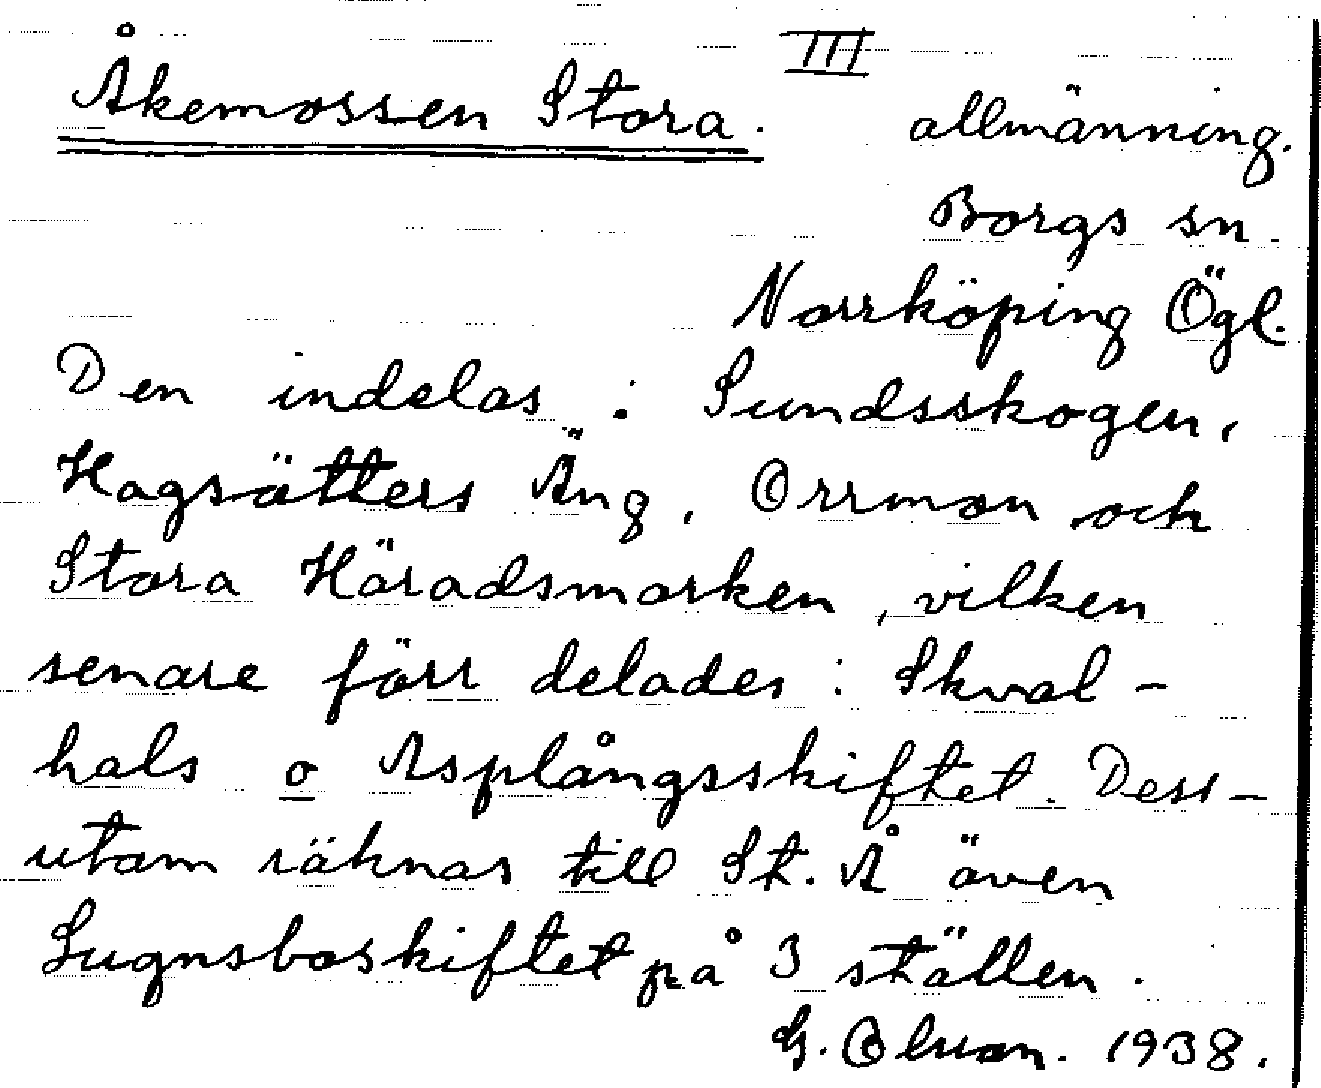 III
Åkemossen Stora. allmänning.
Borgs sn.
Norrköping Ögl.
Den indelas : Sundsskogen,
Hagsätters Äng, Orrmon och
Stora Häradsmarken, vilken
senare förr delades : Skval-
hals o Asplångsskiftet. Dess-
utom räknas till St. Å även
Lugnsboskiftet på 3 ställen.
G. Olson. 1938.